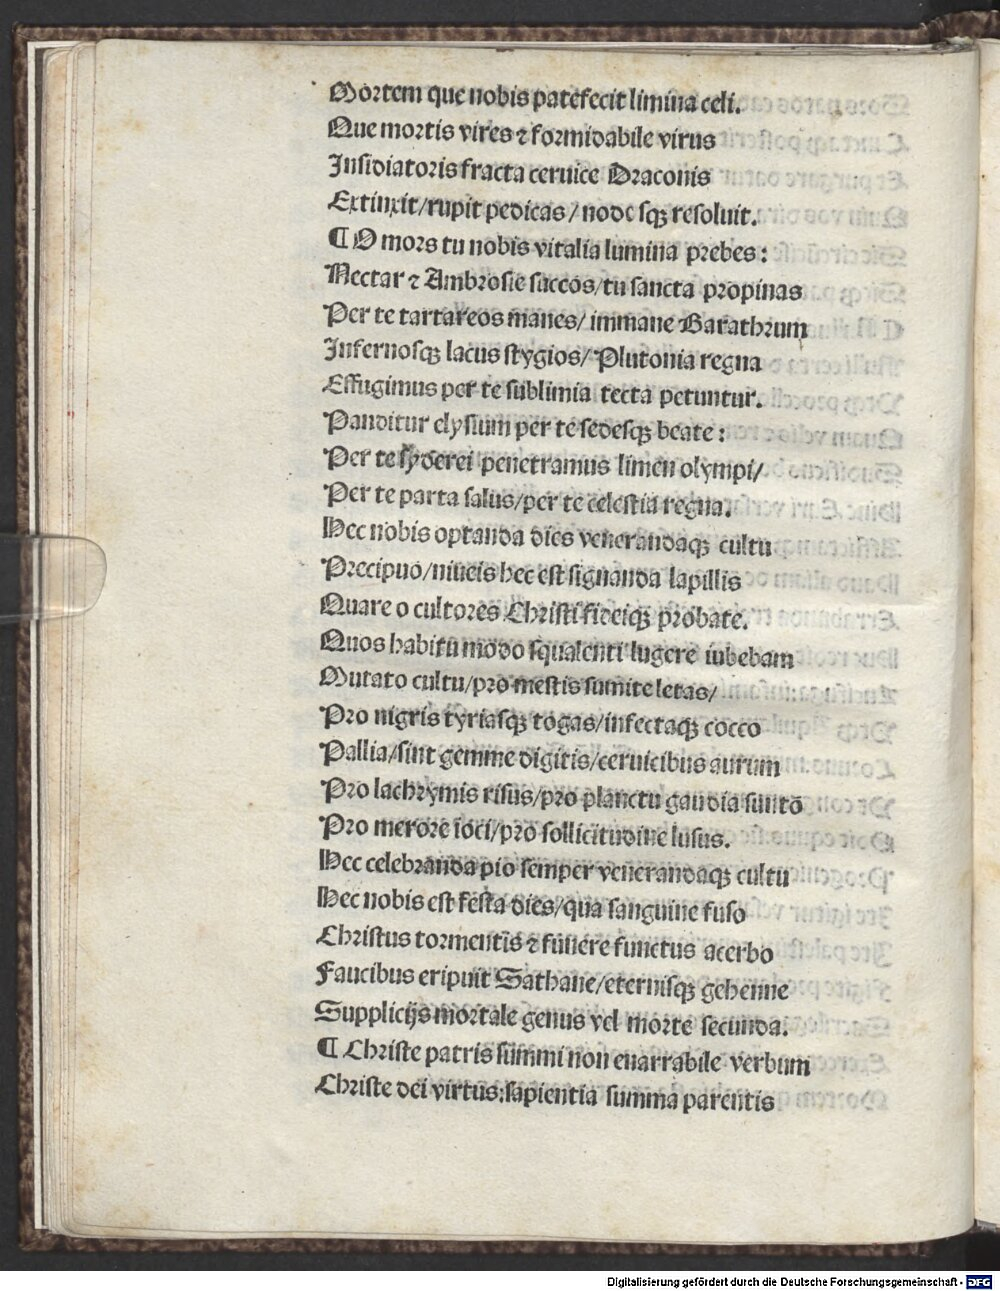 Mortem que nobis patefecit limina celi.
Que mortis vires ⁊ formidabile virus
Insidiatoris fracta ceruice Draconis
Extinxit/rupit pedicas/nodosqꝫ resoluit.
¶ O mors tu nobis vitalia lumina prebes:
Nectar ⁊ Ambrosie succos/tu sancta propinas
Per te tartareos manes/immane Barathrum
Infernosqꝫ lacus stygios/Plutonia regna
Effugimus per te sublimia tecta petuntur.
Panditur elysium per te sedesqꝫ beate:
Per te syderei penetramus limen olympi/
Per te parta salus/per te celestia regna.
Hec nobis optanda dies venerandaqꝫ cultu
Precipuo/niueis hec est signanda lapillis
Quare o cultores Christi fideiqꝫ probate.
Quos habitu modo squalenti lugere iubebam
Mutato cultu/pro mestis sumite letas/
Pro nigris tyriasqꝫ togas/infectaqꝫ cocco
Pallia/sint gemme digitis/ceruicibus aurum
Pro lachrymis risus/pro planctu gaudia sunto
Pro merore ioci/pro sollicitudine lusus.
Hec celebranda pio semper venerandaqꝫ cultu
Hec nobis est festa dies/qua sanguine fuso
Christus tormentis ⁊ funere functus acerbo
Faucibus eripuit Sathane/eternisqꝫ gehenne
Supplicijs mortale genus vel morte secunda.
¶ Christe patris summi non enarrabile verbum
Christe dei virtus:sapientia summa parentis
Digitalisierung gefördert durch die Deutsche Forschungsgemeinschaft - DFG